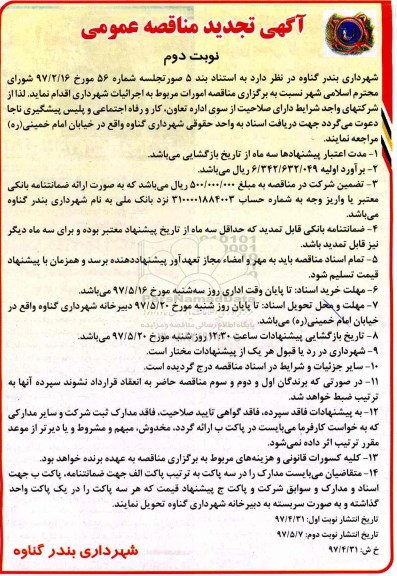 آگهی تجدید مناقصه عمومی
نوبت دوم
شهرداری بندر گناوه در نظر دارد به استناد بند ۵ صورتجلسه شماره ۵۶ مورخ ۹۷/۲/۱۶ شورای
محترم اسلامی شهر نسبت به برگزاری مناقصه امورات مربوط به اجرائیات شهرداری اقدام نماید. لذا از
شرکتهای واجد شرایط دارای صلاحیت از سوی اداره تعاون، کار و رفاه اجتماعی و پلیس پیشگیری ناجا
دعوت می‌گردد جهت دریافت اسناد به واحد حقوقی شهرداری گناوه واقع در خیابان امام خمینی(ره)
مراجعه نمایند.
۱- مدت اعتبار پیشنهادها سه ماه از تاریخ بازگشایی می‌باشد.
۲- برآورد اولیه ۶/۳۴۲/۶۳۲/۰۴۹ ریال می‌باشد.
۳- تضمین شرکت در مناقصه به مبلغ ۵۰۰/۰۰۰/۰۰۰ ریال می‌باشد که به صورت ارائه ضمانتنامه بانکی
معتبر یا واریز وجه به شماره حساب ۳۱۰۰۰۰۱۸۸۴۰۰۳ نزد بانک ملی به نام شهرداری بندر گناوه
می‌باشد.
۴- ضمانتنامه بانکی قابل تمدید که حداقل سه ماه از تاریخ پیشنهاد معتبر بوده و برای سه ماه دیگر
نیز قابل تمدید باشد.
۵- تمام اسناد مناقصه باید به مهر و امضاء مجاز تعهدآور پیشنهاددهنده برسد و همزمان با پیشنهاد
قیمت تسلیم شود.
۶- مهلت خرید اسناد: تا پایان وقت اداری روز سه‌شنبه مورخ ۹۷/۵/۱۶ می‌باشد.
۷- مهلت و محل تحویل اسناد: تا پایان روز شنبه مورخ ۹۷/۵/۲۰ دبیرخانه شهرداری گناوه واقع در
خیابان امام خمینی(ره) می‌باشد.
۸- تاریخ بازگشایی پیشنهادات ساعت ۱۲:۳۰ روز شنبه مورخ ۹۷/۵/۲۰ می‌باشد.
۹- شهرداری در رد یا قبول هر یک از پیشنهادات مختار است.
۱۰- سایر جزئیات و شرایط در اسناد مناقصه درج گردیده است.
۱۱- در صورتی که برندگان اول و دوم و سوم مناقصه حاضر به انعقاد قرارداد نشوند سپرده آنها به
ترتیب ضبط خواهد شد.
۱۲- به پیشنهادات فاقد سپرده، فاقد گواهی تایید صلاحیت، فاقد مدارک ثبت شرکت و سایر مدارکی
که به خواست کارفرما می‌بایست در پاکت ب ارائه گردد، مخدوش، مبهم و مشروط و یا دیرتر از موعد
مقرر ترتیب اثر داده نمی‌شود.
۱۳- کلیه کسورات قانونی و هزینه‌های مربوط به برگزاری مناقصه به عهده برنده خواهد بود.
۱۴- متقاضیان می‌بایست مدارک را در سه پاکت به ترتیب پاکت الف جهت ضمانتنامه، پاکت ب جهت
اسناد و مدارک و سوابق شرکت و پاکت ج پیشنهاد قیمت که هر سه پاکت را در یک پاکت واحد
گذاشته و به صورت سربسته به دبیرخانه شهرداری گناوه تحویل نمایند.
تاریخ انتشار نوبت اول: ۹۷/۴/۳۱
تاریخ انتشار نوبت دوم: ۹۷/۵/۷
خ ش: ۹۷/۴/۳۱
شهرداری بندر گناوه